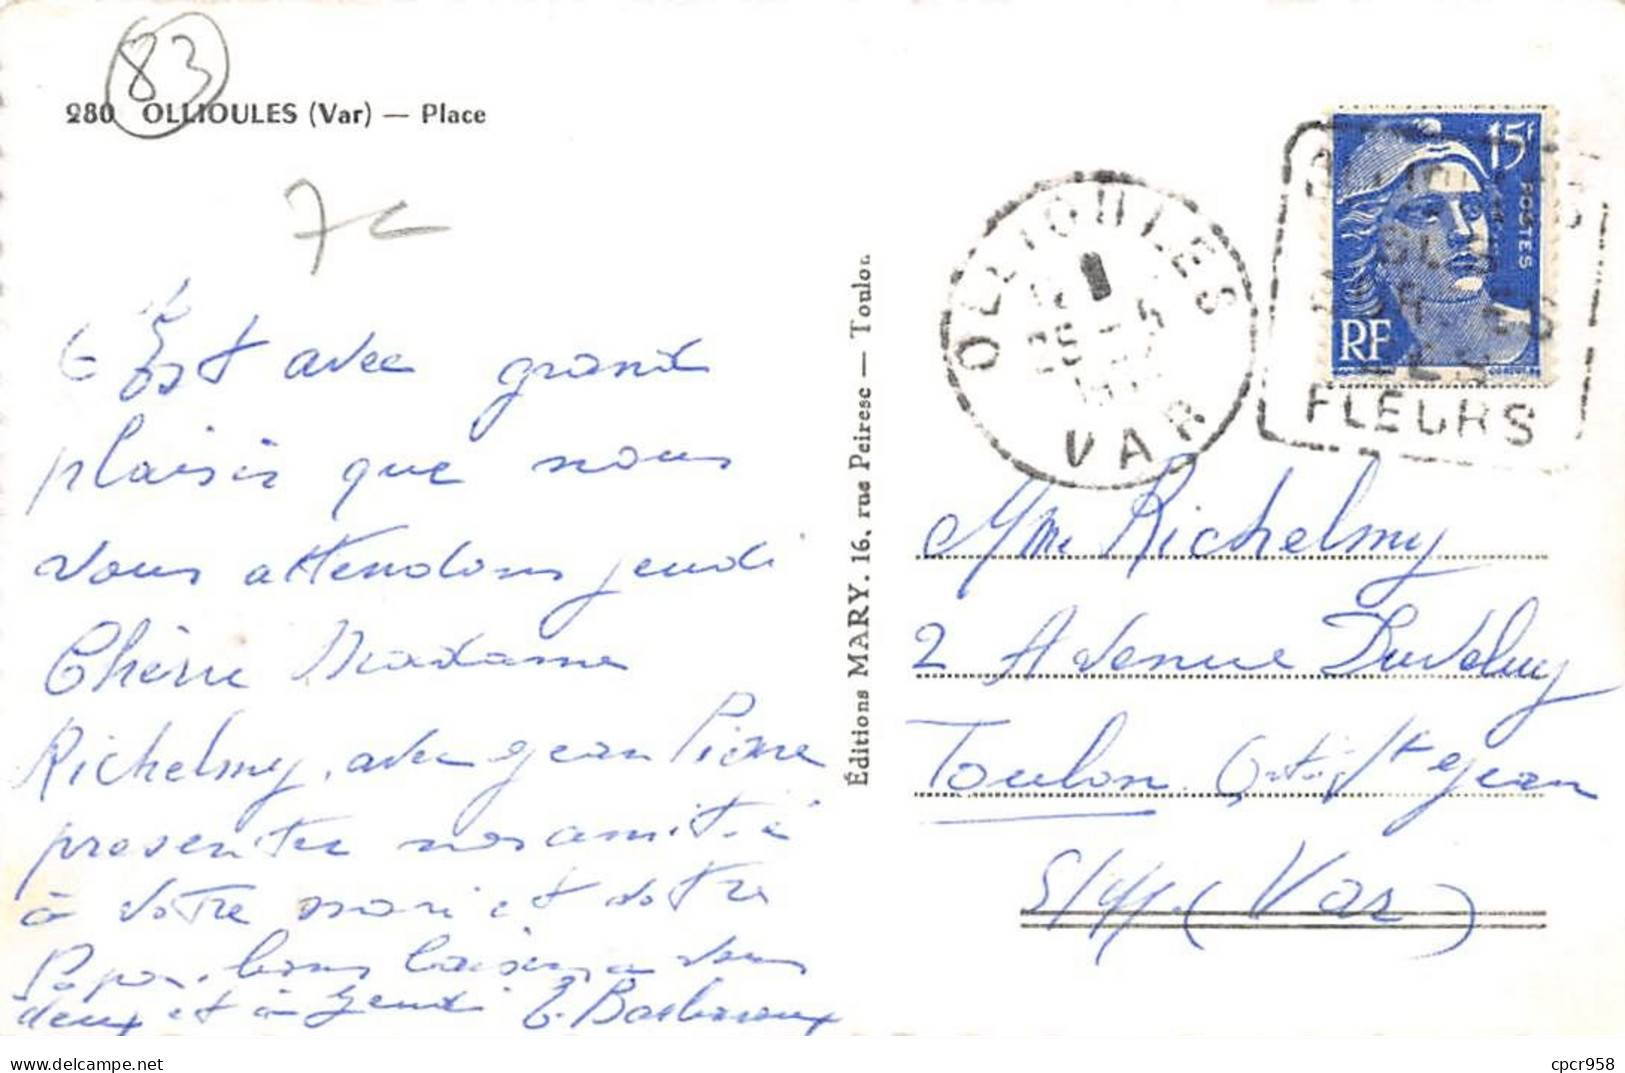 83
280 OLLIOULES (Var) — Place
7
C'Est avec grand
plaisir que nous
vous attendons jeudi
Chère Madame
Richelmy, avec jean Pierre
presenter nos amitié
à votre mari et votre
Papa, bons baisers a vous
deux et à jeudi B. Barbaroux
Éditions MARY. 16, rue Peiresc — Toulon
OLLIOULES
VAR
15F
POSTES
RF
FLEURS
Mme Richelmy
2 Avenue
Toulon St jean
(Var)
cpcr958
www.delcampe.net